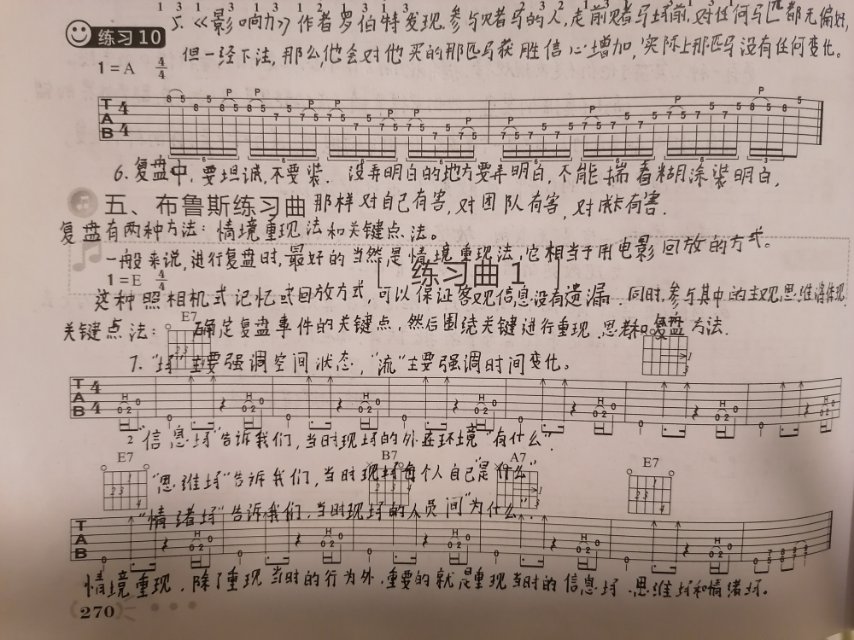 5.《影响力》作者罗伯特发现,参与赌马的人,走前赌者马场前,对任何马匹都无偏好,
练习 10
但一经下注,那么,他会对他买的那匹马获胜信心增加,实际上那匹马没有任何变化。
1 = A 4/4
6. 复盘中,要坦诚,不要装. 没弄明白的地方要弄明白,不能揣着糊涂装明白,
五、布鲁斯练习曲
那样对自己有害,对团队有害,对
有害.
复盘有两种方法:情境重现法和关键点法。
一般来说,进行复盘时,最好的当然是情境重现法,它相当于用电影回放的方式。
练习曲 1
1 = E 4/4
这种照相机式记忆式回放方式,可以保证客观信息没有遗漏.同时,参与其中的主观思维得体现.
关键点法: 确定复盘事件的关键点,然后围绕关键进行重现、思考和复盘方法.
E7
7. "场"主要强调空间状态,"流"主要强调时间变化。
"信息场"告诉我们,当时现场的外在环境"有什么".
E7 B7 A7 E7
"思维场"告诉我们,当时现场每个人自己"是什么"
"情绪场"告诉我们,当时现场的人员间"为什么".
情境重现,除了重现当时的行为外,重要的就是重现当时的信息场、思维场和情绪场。
270